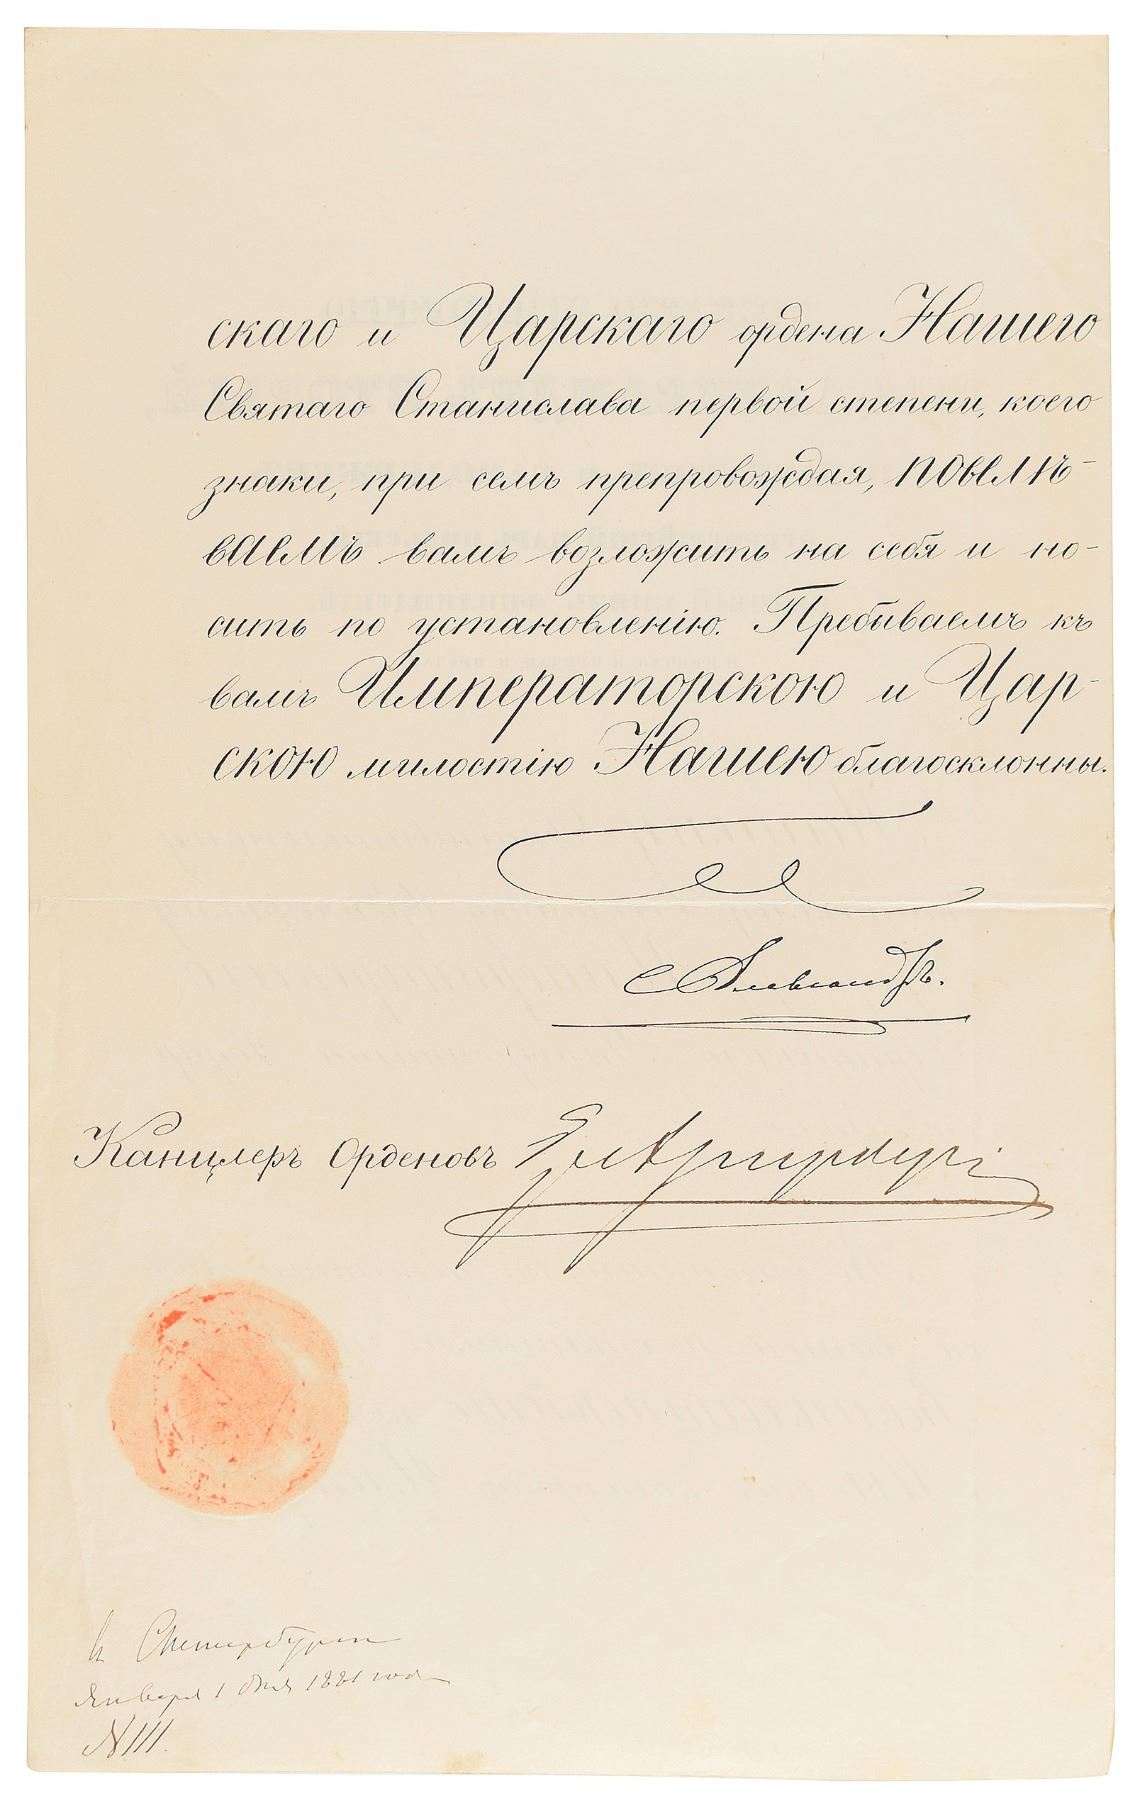 скаго и Царскаго ордена Нашего
Святаго Станислава первой степени, коего
знаки, при семъ препровождая, ПОВЕЛѢ-
ВАЕМЪ вамъ возложить на себя и но-
сить по установленію. Пребываемъ къ
вамъ Императорскою и Цар-
скою милостію Нашею благосклонны.
Александръ.
Канцлеръ Орденовъ
Января 1 дня 1881 года
N 111.